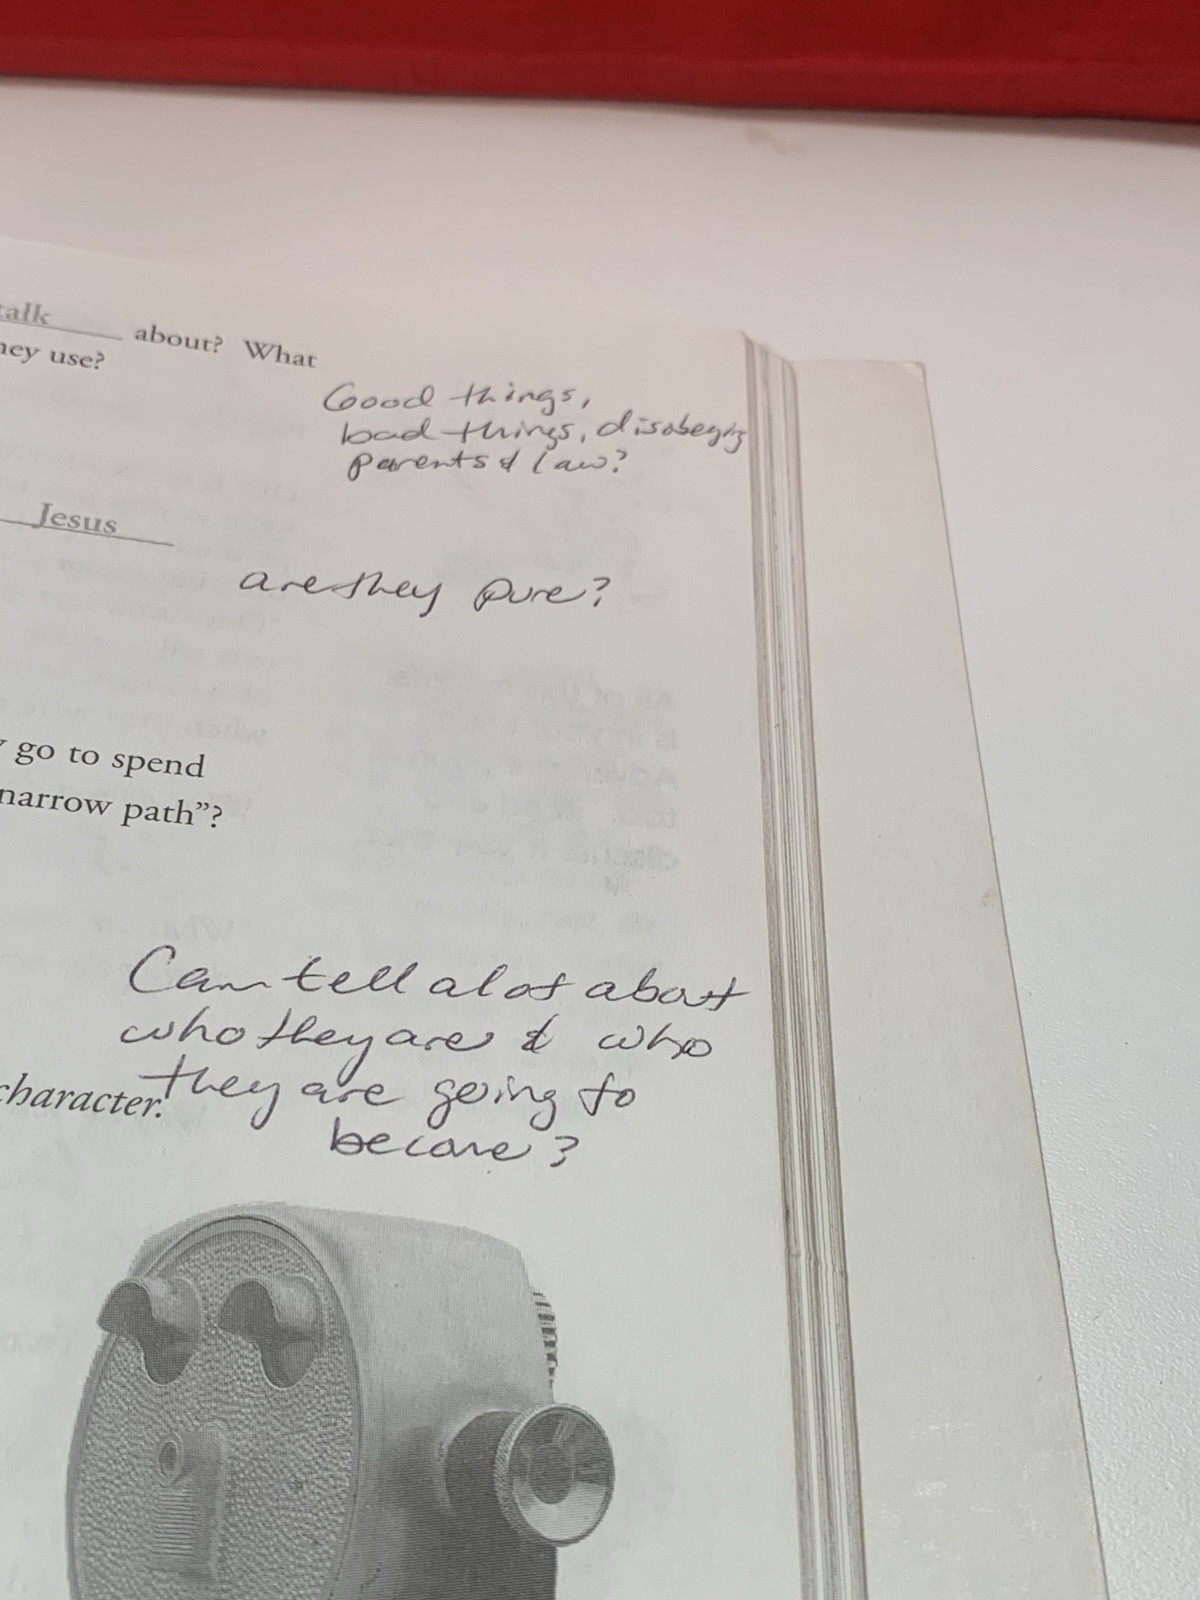 talk about? What
hey use?
Good things,
bad things, disobeying
parents & law?
Jesus
are they pure?
go to spend
narrow path"?
Can tell a lot about
who they are & who
they are going to
character.
become?